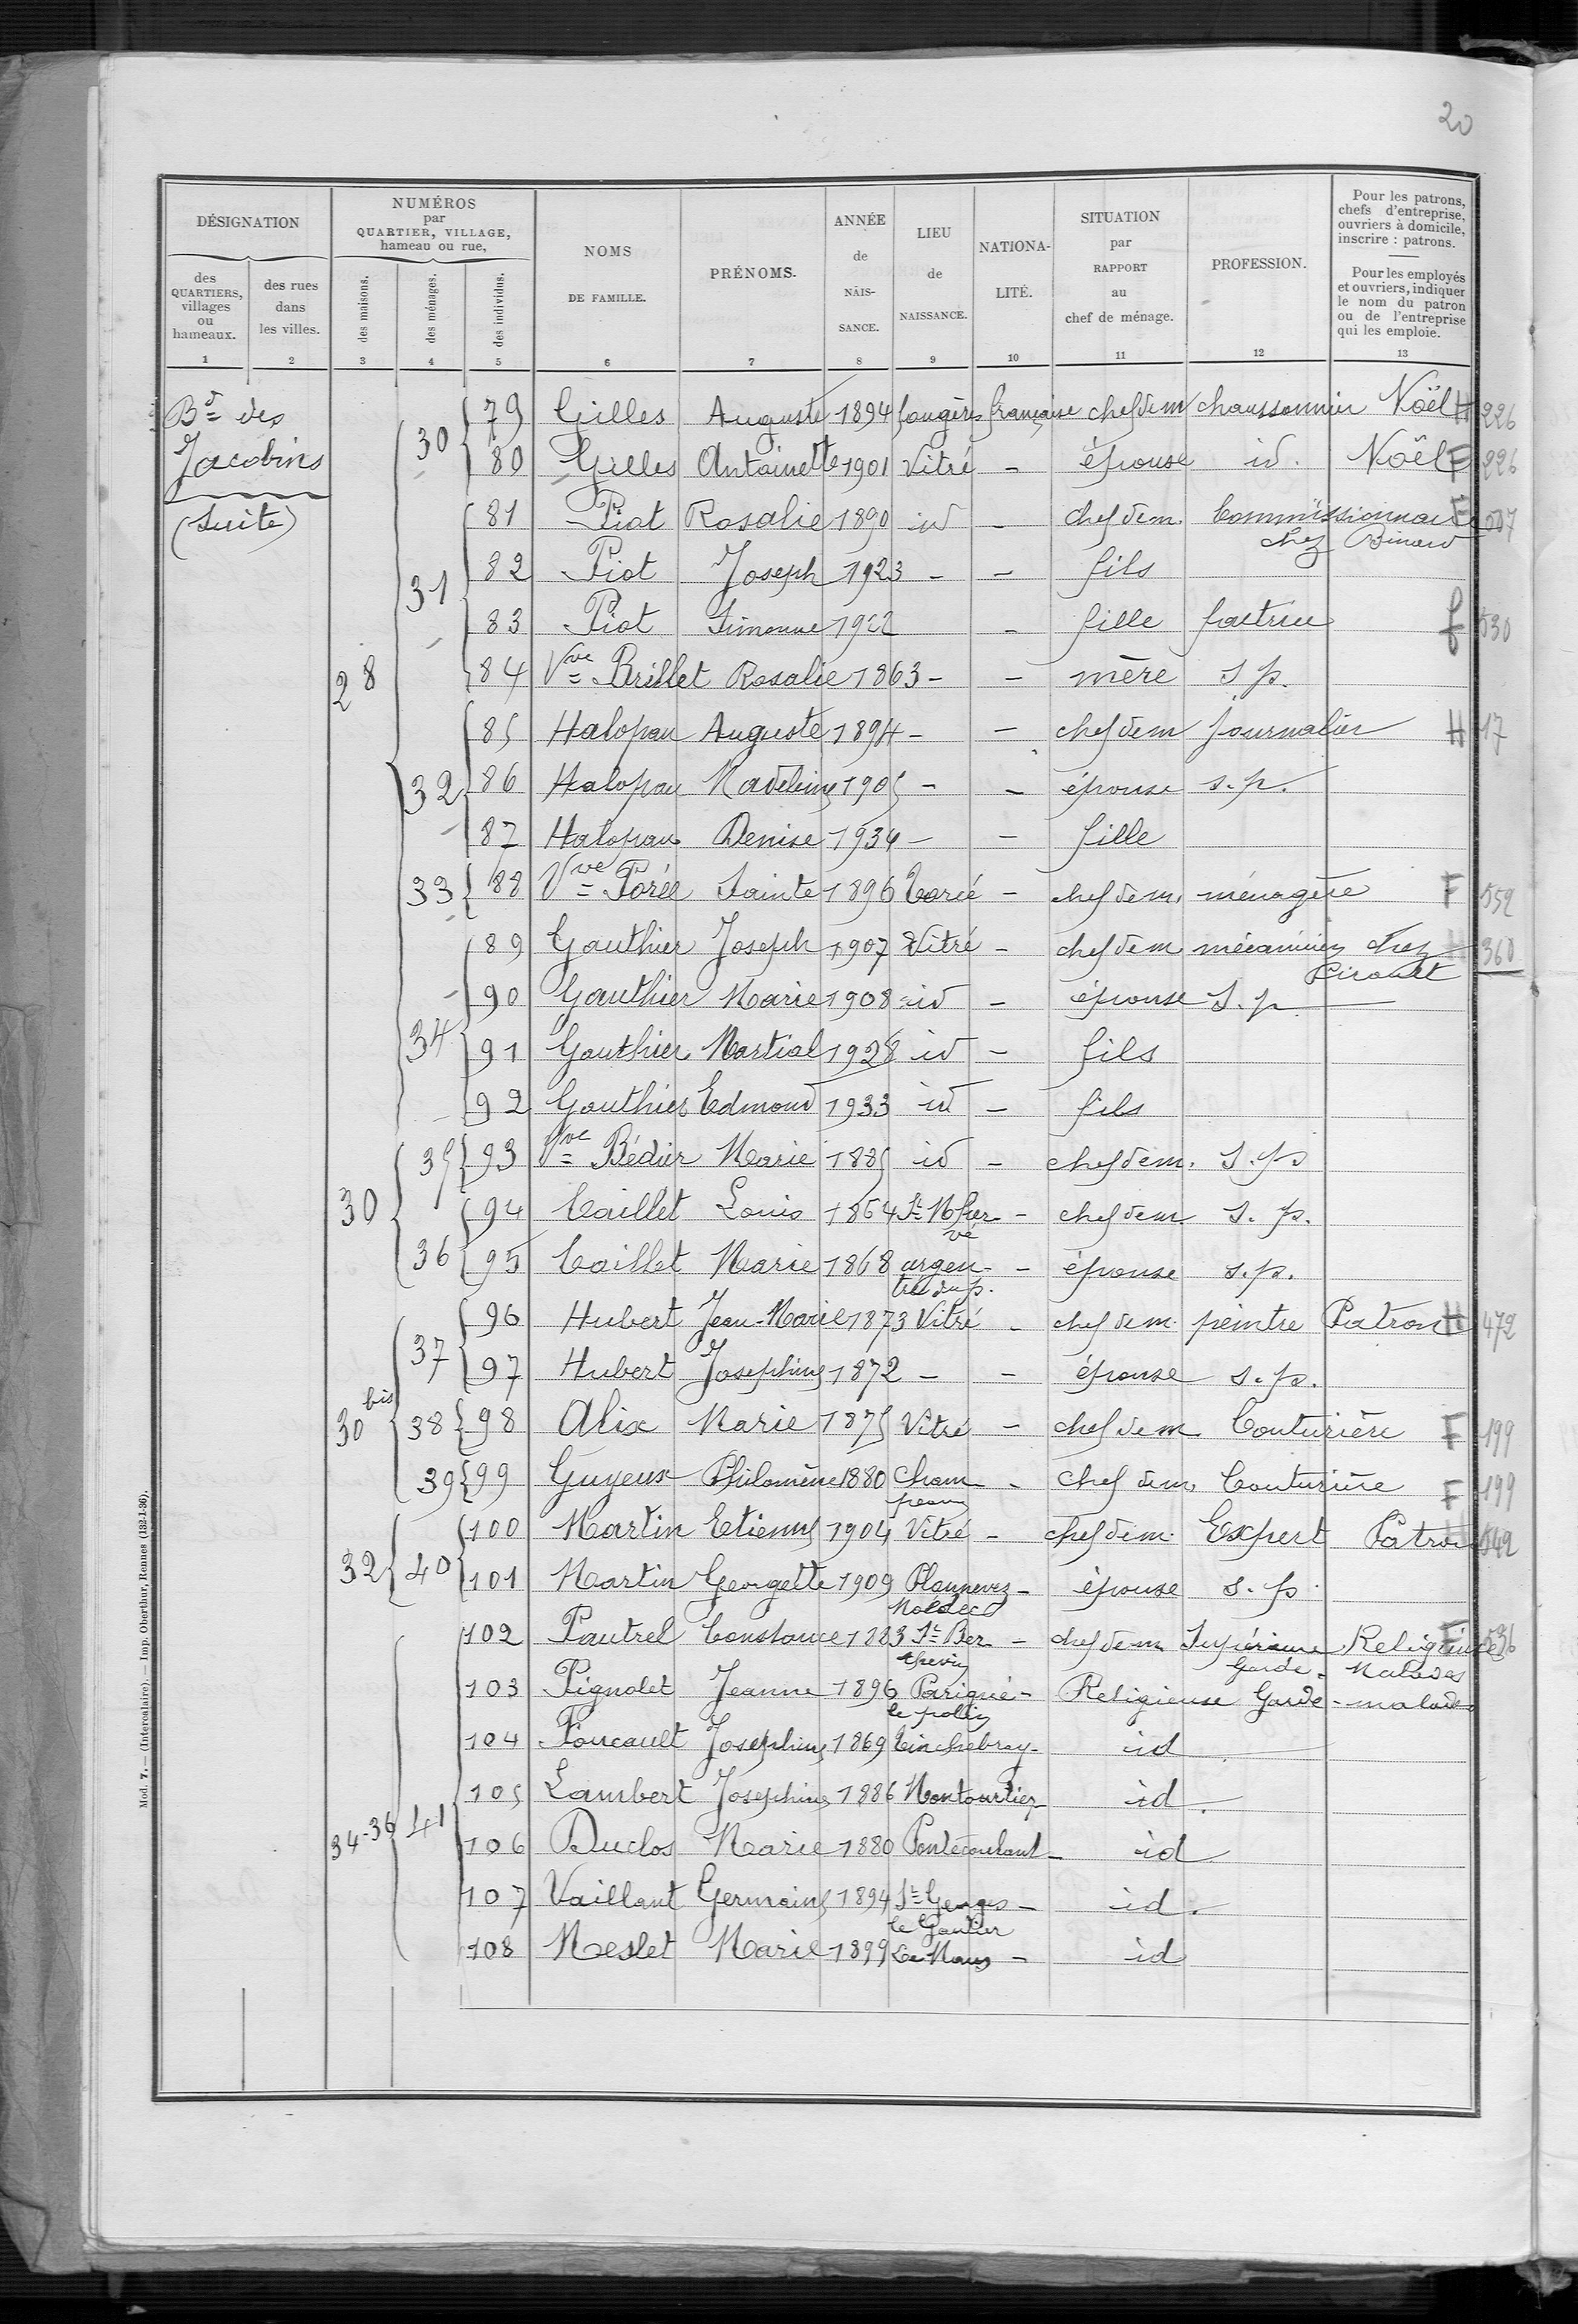 20
DÉSIGNATION
des QUARTIERS, villages ou hameaux.
des rues dans les villes.
NUMÉROS par QUARTIER, VILLAGE, hameau ou rue,
des maisons.
des ménages.
des individus.
NOMS DE FAMILLE.
PRÉNOMS.
ANNÉE de NAIS-SANCE.
LIEU de NAISSANCE.
NATIONA-LITÉ.
SITUATION par RAPPORT au chef de ménage.
PROFESSION.
Pour les patrons, chefs d'entreprise, ouvriers à domicile, inscrire : patrons.
Pour les employés et ouvriers, indiquer le nom du patron ou de l'entreprise qui les emploie.
1 2 3 4 5 6 7 8 9 10 11 12 13
Bd des Jacobins (Suite)
28 30 79 Gilles Auguste 1894 fougères française chef dem chaussonnier Noël H 226
80 Gilles Antoinette 1901 Vitré - épouse id. Noël F 226
31 81 Piot Rosalie 1890 id - chef dem. Commissionnaire F 507
chez Binard
82 Piot Joseph 1923 - - fils
83 Piot Simonne 1922 - fille factrice f 530
84 Vve Brillet Rosalie 1863 - - mère s p.
32 85 Halopau Auguste 1894 - - chef dem journalier H 17
86 Halopau Madeleine 1905 - - épouse s.p.
87 Halopau Denise 1934 - - fille
33 88 Vve Porée Sainte 1896 Torcé - chef dem. ménagère F 552
34 89 Gauthier Joseph 1907 Vitré - chef dem mécanicien chez 360
Pirouet
90 Gauthier Marie 1908 id - épouse S.p
91 Gauthier Martial 1928 id - fils
92 Gauthier Edmond 1933 id - fils
30 35 93 Vve Bédier Marie 1885 id - chef dem. S.p
36 94 Caillet Louis 1864 St M'her - chef dem S. p.
vé
95 Caillet Marie 1868 argen- - épouse s.p.
tré du p.
30 bis 37 96 Hubert Jean-Marie 1873 Vitré - chef dem. peintre Patron H 472
97 Hubert Josephine 1872 - - épouse s.p.
38 98 Alix Marie 1875 Vitré - chef dem Couturière F 199
39 99 Guyeux Philomène 1880 Cham - Chef dem. Couturière F 199
peaux
32 40 100 Martin Etienne 1904 Vitré - chef dem. Expert Patron 542
101 Martin Georgette 1909 Plounevez - épouse s. p.
Moëdec
34-36 41 102 Pautrel Constance 1883 St Ber - chef dem Supérieure Religieuse F 536
thevin Garde-Malades
103 Pignolet Jeanne 1896 Parigné - Religieuse Garde-malades
le pollin
104 Foucault Josephine 1869 Tinchebray - id
105 Lambert Josephine 1886 Montourtier - id.
106 Duclos Marie 1880 Pontécoulant - id
107 Vaillant Germaine 1894 St Georges - id.
le Gaultier
108 Meslet Marie 1899 Le Mans - id
Mod. 7. — (Intercalaire). — Imp. Oberthur, Rennes (132-1-36).